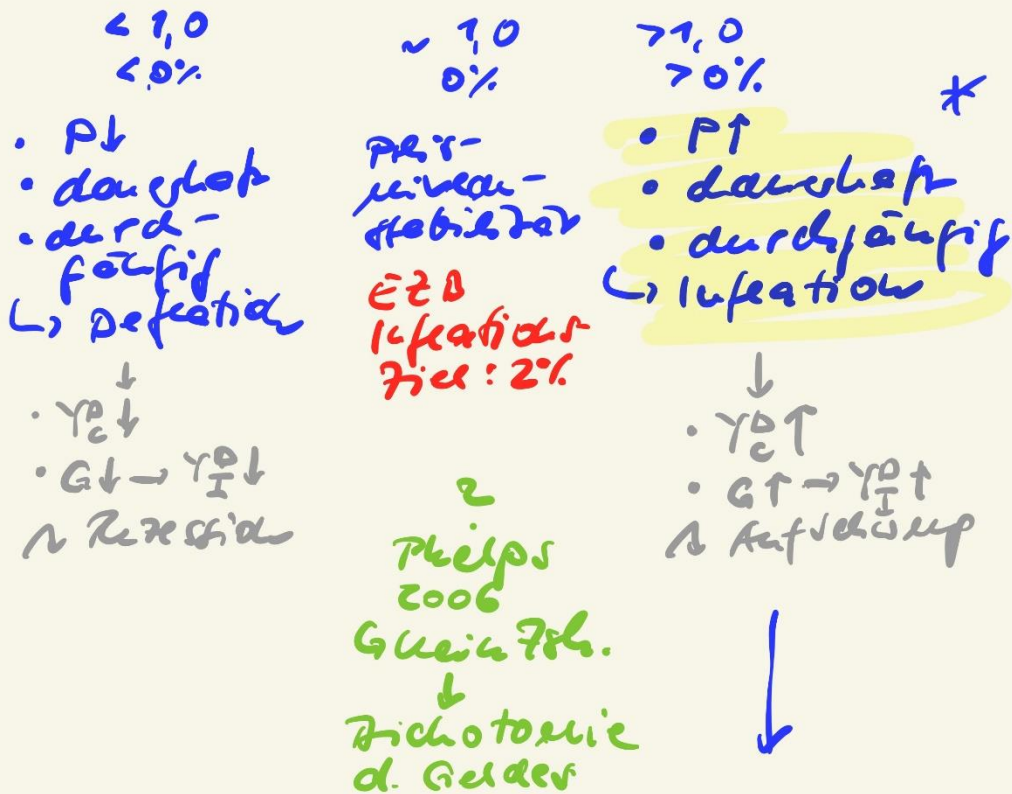 < 1,0
< 0%
• P↓
• dauerhaft
• durch-
gängig
↳ Deflation
↓
• Y_C^D ↓
• G↓ → Y_I^D ↓
Rezession
~ 1,0
0%
Preis-
niveau-
stabilität
EZB
Inflations-
Ziel: 2%
2
Phelps
2006
↓
Dichotomie
d. Geldes
> 1,0
> 0%
*
• P↑
• dauerhaft
• durchgängig
↳ Inflation
↓
• Y_C^D ↑
• G↑ → Y_I^D ↑
Aufschwung